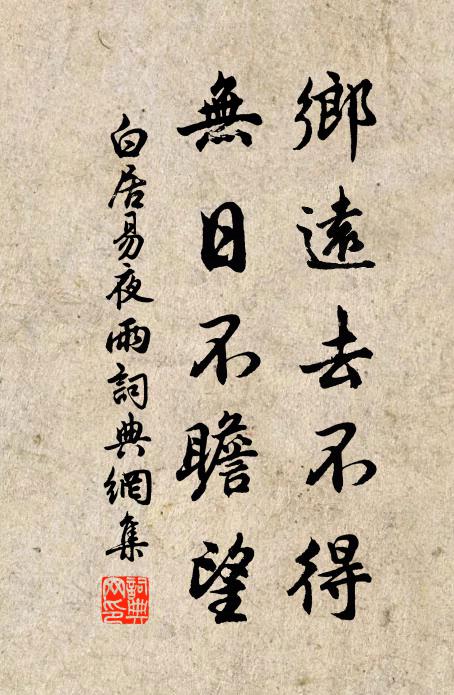 鄉遠去不得
無日不瞻望
白居易夜雨詞典網集
詞典
网印